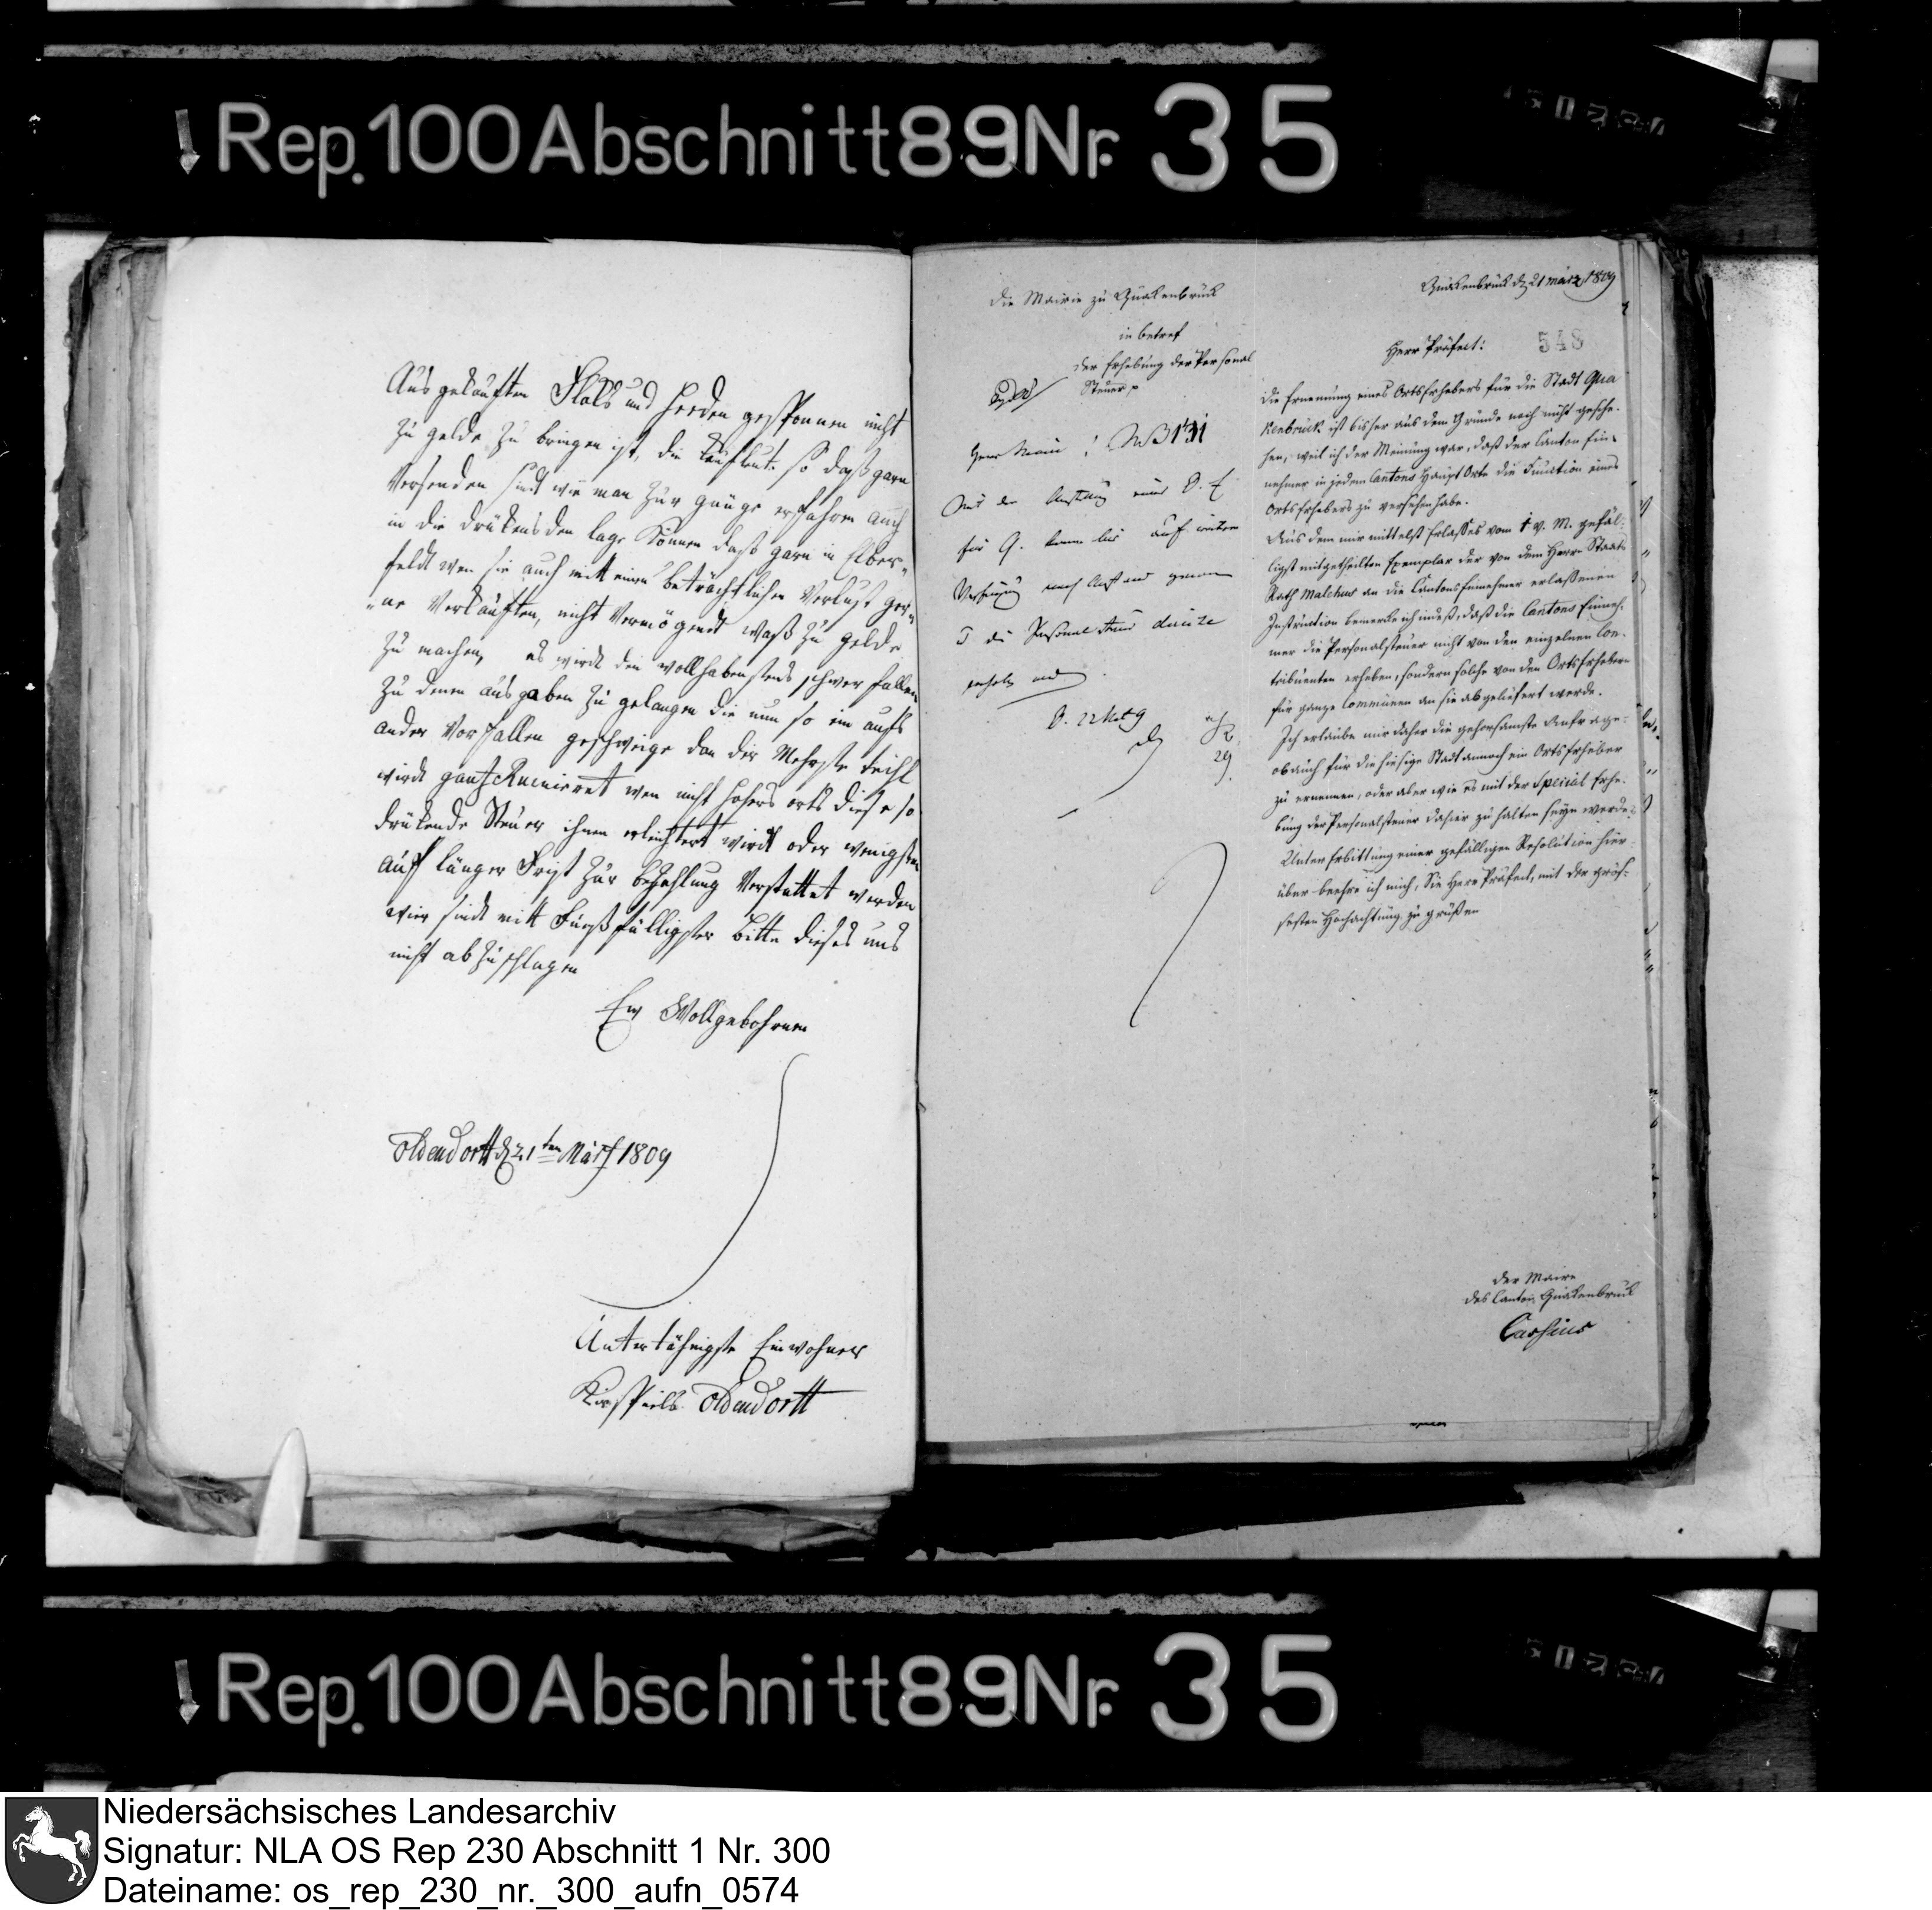 Rep. 100 Abschnitt 89 Nr. 35
Aus gekauften Flaks und Heeden gesponnen nicht
zu gelde zu bringen ist, die Kaufleute so daß garn
Versenden sind wie man zur genüge erfahren auch
in die drükensden lage können daß garn in Elber„
feldt wen sie auch mitt einen beträchtlichen Verlust ger„
„ne Verkauften, nicht Vermögendt waß zu gelde
zu machen, es wirdt den wollhabenstens schwer fallen
zu denen ausgaben zu gelangen die nun so ein aufs
ander Vorfallen geschweige dan der Mehrste teihl
wirdt gantz Ruinieret wen nicht hohers orts diese so
drükende Steuer ihnen erleichtert wirdt oder wenigsten
auf länger Frist zur bezahlung Verstattet werden
wier sindt mitt Fuußfälligster bitte dieses uns
nicht abzuschlagen
Ew Wollgebohrnen
Oldendortt d 21ten Märtz 1809
Untertähnigste Einwohner
Kirspiels Oldendortt
die Mairie zu Quakenbrück
in betref
der Erhebung der Personal
Steuer
Herr Maire!
Mit der Anstellung eines O. E.
für Q. kann bis auf weitere
Verfügung noch Anstand genommen
die Personal Steuer
werden
Quakenbrück d 21 März 1809
548
Herr Präfect:
Die Ernennung eines Ortserhebers für die Stadt Qua
kenbrück ist bisher aus dem Grunde noch nicht gesche-
hen, weil ich der Meinung war, daß der Canton Ein-
nehmer in jedem Cantons Haupt Orte die Function eines
Ortserhebers zu versehen habe.
Aus dem mir mittelst Erlaßes vom v. M. gefäl-
ligst mitgetheilten Exemplar der von dem Herrn Staats
Rath Malchus an die Cantonseinnehmer erlaßenen
Instruction bemerke ich indeß, daß die Cantons Einneh-
mer die Personalsteuer nicht von den einzelnen Con-
tribuenten erheben, sondern solche von den Ortserhebern
für ganze Communen an sie abgeliefert werde.
Ich erlaube mir daher die gehorsamste Anfrage:
ob auch für die hiesige Stadt annoch ein Ortserheber
zu ernennen, oder aber wie es mit der Special Erhe-
bung der Personalsteuer dahier zu halten seyn werde?
Unter Erbittung einer gefälligen Resolution hier-
über beehre ich mich, Sie Herr Präfect, mit der grös-
sesten Hochachtung zu grüßen
der Maire
des Canton Quakenbrück
Cassius
Rep. 100 Abschnitt 89 Nr. 35
Niedersächsisches Landesarchiv
Signatur: NLA OS Rep 230 Abschnitt 1 Nr. 300
Dateiname: os_rep_230_nr._300_aufn_0574